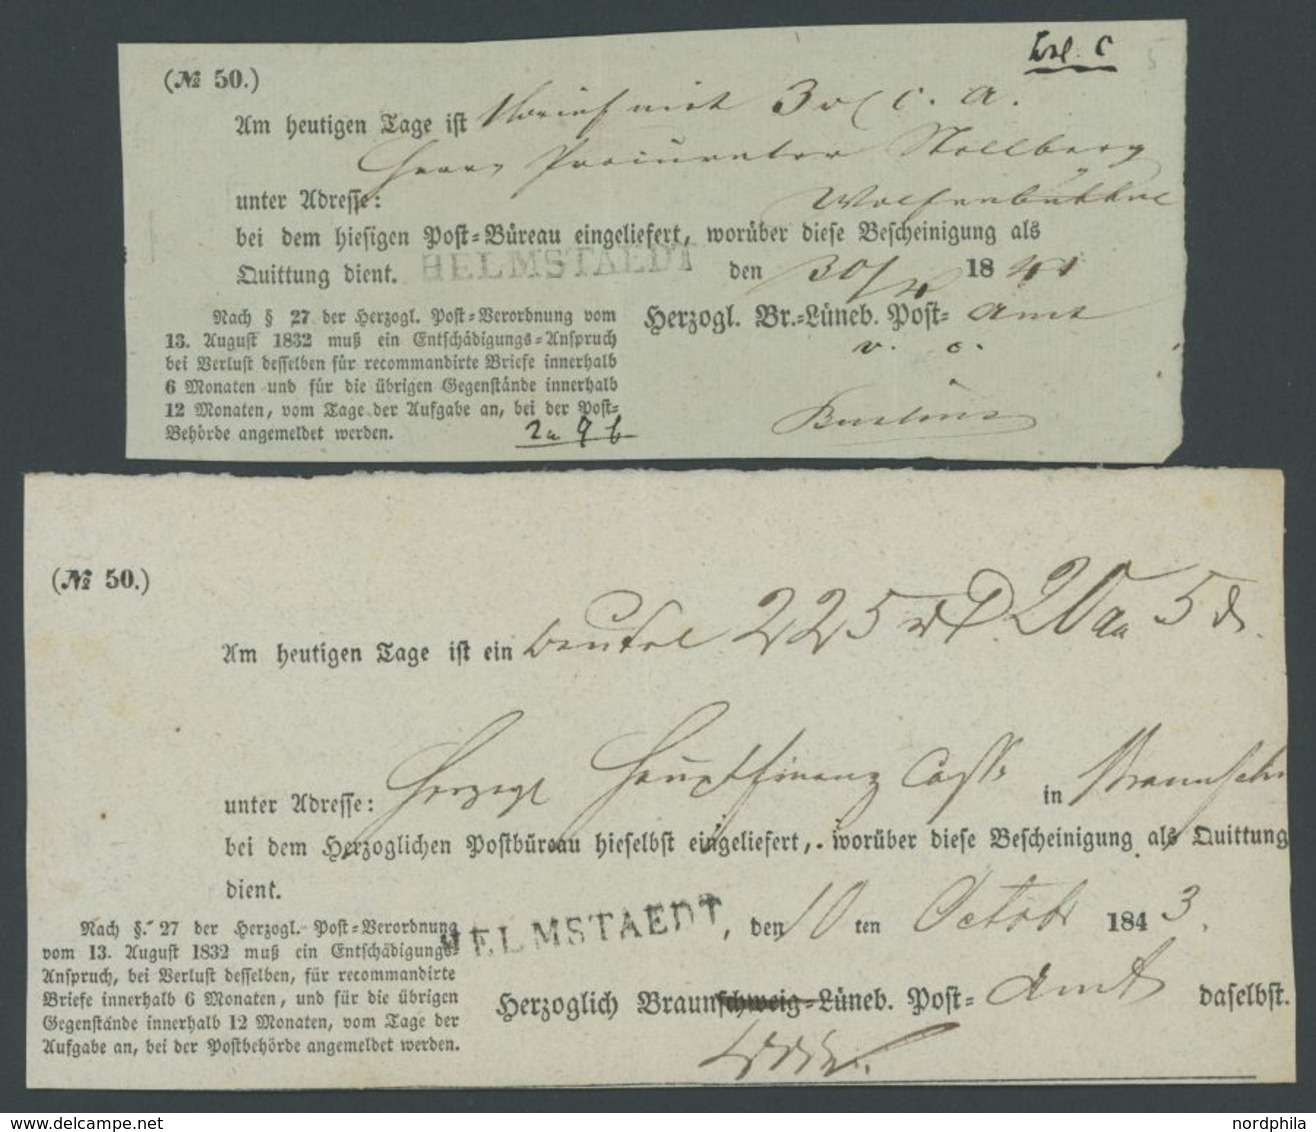 (№ 50.)
Am heutigen Tage ist 1 Brief mit 3 C. A.
Herrn Procurator Stollberg
unter Adresse: Wolfenbüttel
bei dem hiesigen Post-Büreau eingeliefert, worüber diese Bescheinigung als
Quittung dient. HELMSTAEDT den 30/ 1841
Nach § 27 der Herzogl. Post-Verordnung vom
13. August 1832 muß ein Entschädigungs-Anspruch
bei Verlust desselben für recommandirte Briefe innerhalb
6 Monaten und für die übrigen Gegenstände innerhalb
12 Monaten, vom Tage der Aufgabe an, bei der Post-
Behörde angemeldet werden.
Herzogl. Br.-Lüneb. Post- Amt
v. c.
(№ 50.)
Am heutigen Tage ist ein Beutel 225 20 5
unter Adresse: Herzogl Hauptfinanz Casse in Braunschw
bei dem Herzoglichen Postbüreau hieselbst eingeliefert, worüber diese Bescheinigung als Quittung
dient.
HELMSTAEDT, den 10 ten Octobr 1843.
Nach §. 27 der Herzogl. Post-Verordnung
vom 13. August 1832 muß ein Entschädigungs-
Anspruch, bei Verlust desselben, für recommandirte
Briefe innerhalb 6 Monaten, und für die übrigen
Gegenstände innerhalb 12 Monaten, vom Tage der
Aufgabe an, bei der Postbehörde angemeldet werden.
Herzoglich Braunschweig-Lüneb. Post- Amt daselbst.
www.ansichtskarten-center.de
nordphila